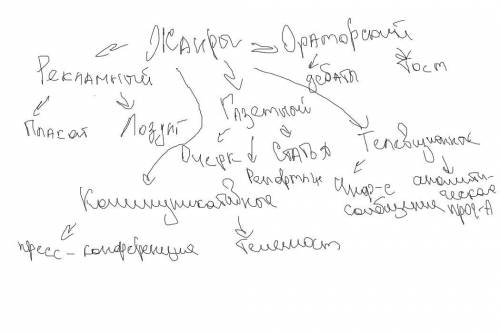 Жанры
Ораторский
Рекламный
дебаты
Тост
Газетный
Плакат
Лозунг
Телевизионное
Очерк
Статья
Репортаж
Коммуникативное
инфор-е сообщение
аналитическая прог-а
пресс-конференция
Телемост